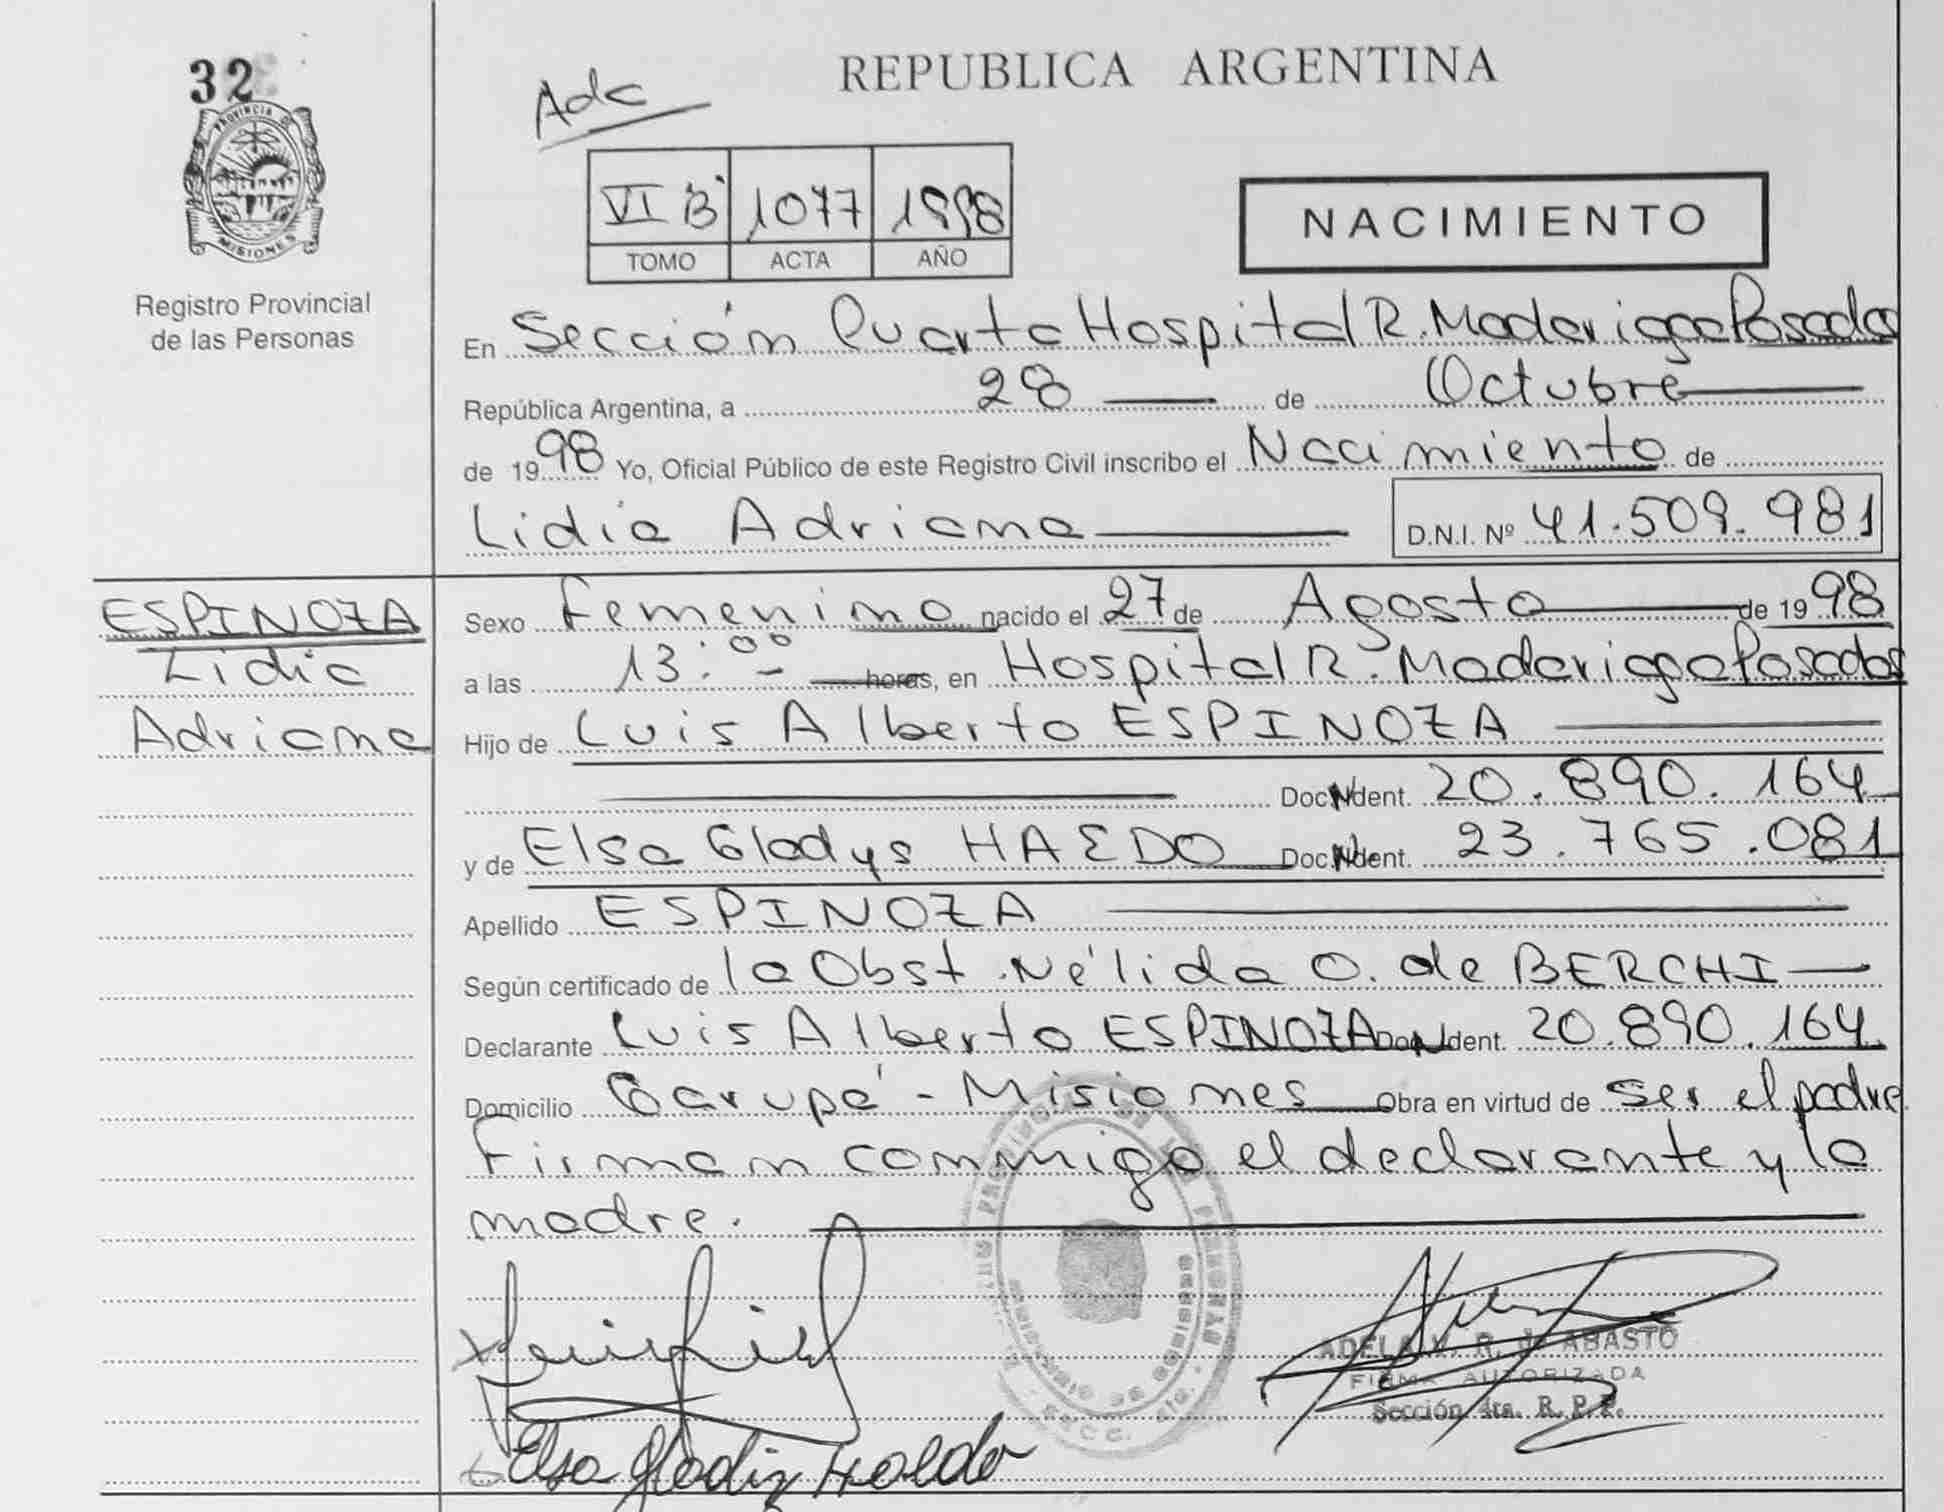 32
PROVINCIA D
MISIONES
Registro Provincial
de las Personas
REPUBLICA ARGENTINA
VI B 1077 1998
TOMO ACTA AÑO
NACIMIENTO
En Sección Cuarta Hospital R. Madariaga Posadas
República Argentina, a 28 de Octubre
de 1998 Yo, Oficial Público de este Registro Civil inscribo el Nacimiento de
Lidia Adriana D.N.I. Nº 41.509.981
ESPINOZA
Lidia
Adriana
Sexo Femenino nacido el 27 de Agosto de 1998
a las 13:00 horas, en Hospital R. Madariaga Posadas
Hijo de Luis Alberto ESPINOZA
Doc. Ident. 20.890.164
y de Elsa Gladys HAEDO Doc. Ident. 23.765.081
Apellido ESPINOZA
Según certificado de la Obst. Nélida O. de BERCHI
Declarante Luis Alberto ESPINOZA Doc. Ident. 20.890.164
Domicilio Garupá - Misiones Obra en virtud de ser el padre
Firman conmigo el declarante y la
madre.
ADELA V. R. de ABASTO
FIRMA AUTORIZADA
Sección 4ta. R. P. P.
Elsa Gladiz Haedo